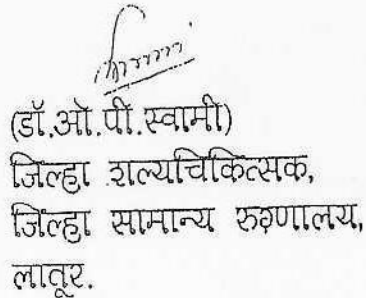 (डॉ.ओ.पी.स्वामी)
जिल्हा शल्यचिकित्सक,
जिल्हा सामान्य रुग्णालय,
लातूर.